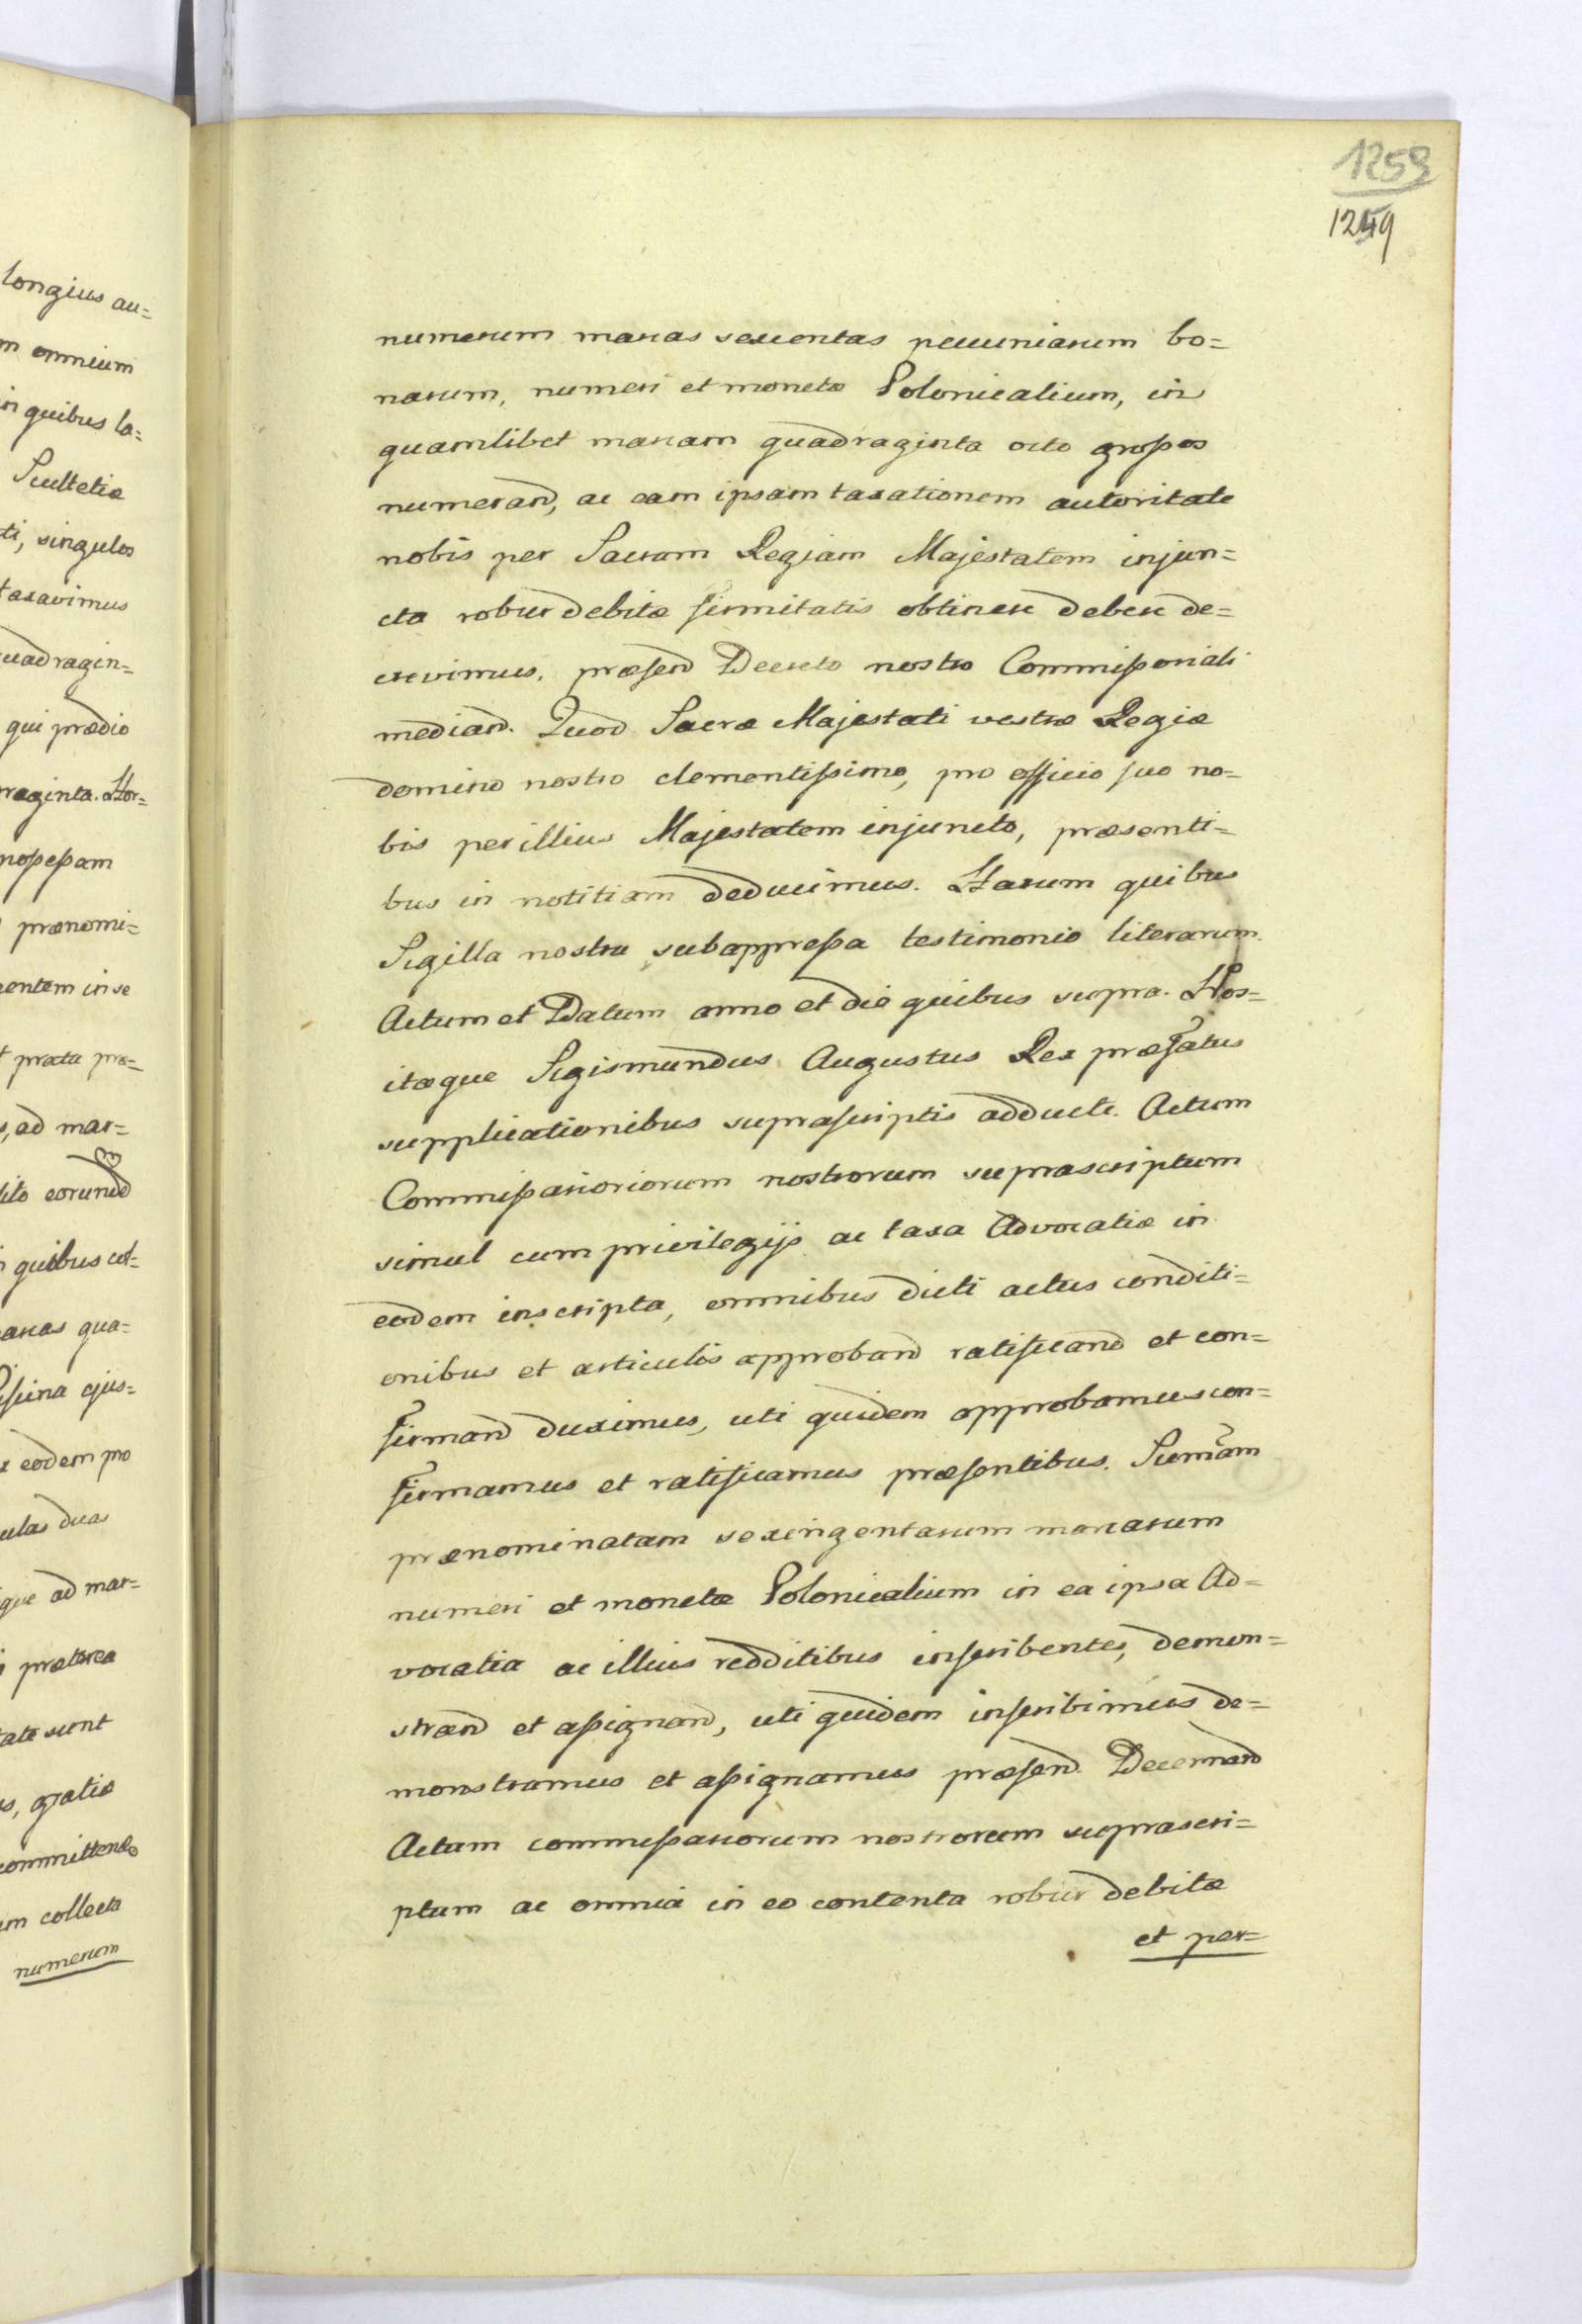 longius au=
m omnium
in quibus la=
Scultetiæ
ti, singulos
taxavimus
uadragin=
qui prædio
raginta. Hor=
nossessam
prænomi=
entem in se
t prata præ=
s, ad mar=
dito eorund
n quibus col=
arcas qua=
Piscina ejus=
x eodem pro
ulas duas
que ad mar=
i præterea
tate sunt
s, gratiæ
committendo
um collecta
numerum
1259
1249
numerum marcas sexcentas pecuniarum bo=
narum, numeri et monetæ Polonicalium, in
quamlibet marcam quadraginta octo grossos
numerand, ac eam ipsam taxationem autoritate
nobis per Sacram Regiam Majestatem injun=
cta robur debitæ firmitatis obtinere debere de=
crevimus, præsend Decreto nostro Commissoriali
mediand. Quod Sacræ Majestati vestræ Regiæ
domino nostro clementissimo, pro officio suo no=
bis per illius Majestatem injuncto, præsenti=
bus in notitiam deducimus. Harum quibus
Sigilla nostra subappressa testimonio literarum.
Actum et Datum anno et die quibus supra. Nos=
itaque Sigismundus Augustus Rex præfatus
supplicationibus suprascriptis adducti. Actum
Commissarioriorum nostrorum suprascriptum
simul cum privilegijs ac taxa Advocatiæ in
eodem inscripta, omnibus dicti actus conditi=
onibus et articulis approband ratificand et con=
firmand duximus, uti quidem approbamus con=
firmamus et ratificamus præsentibus. Sumam
prænominatam sexingentarum marcarum
numeri et monetæ Polonicalium in ea ipsa Ad=
vocatia ac illius redditibus inscribentes, demon=
strand et assignand, uti quidem inscribimus de=
monstramus et assignamus præsend. Decernend
Actum commissariorum nostrorum suprascri=
ptum ac omnia in eo contenta robur debitæ
et per=